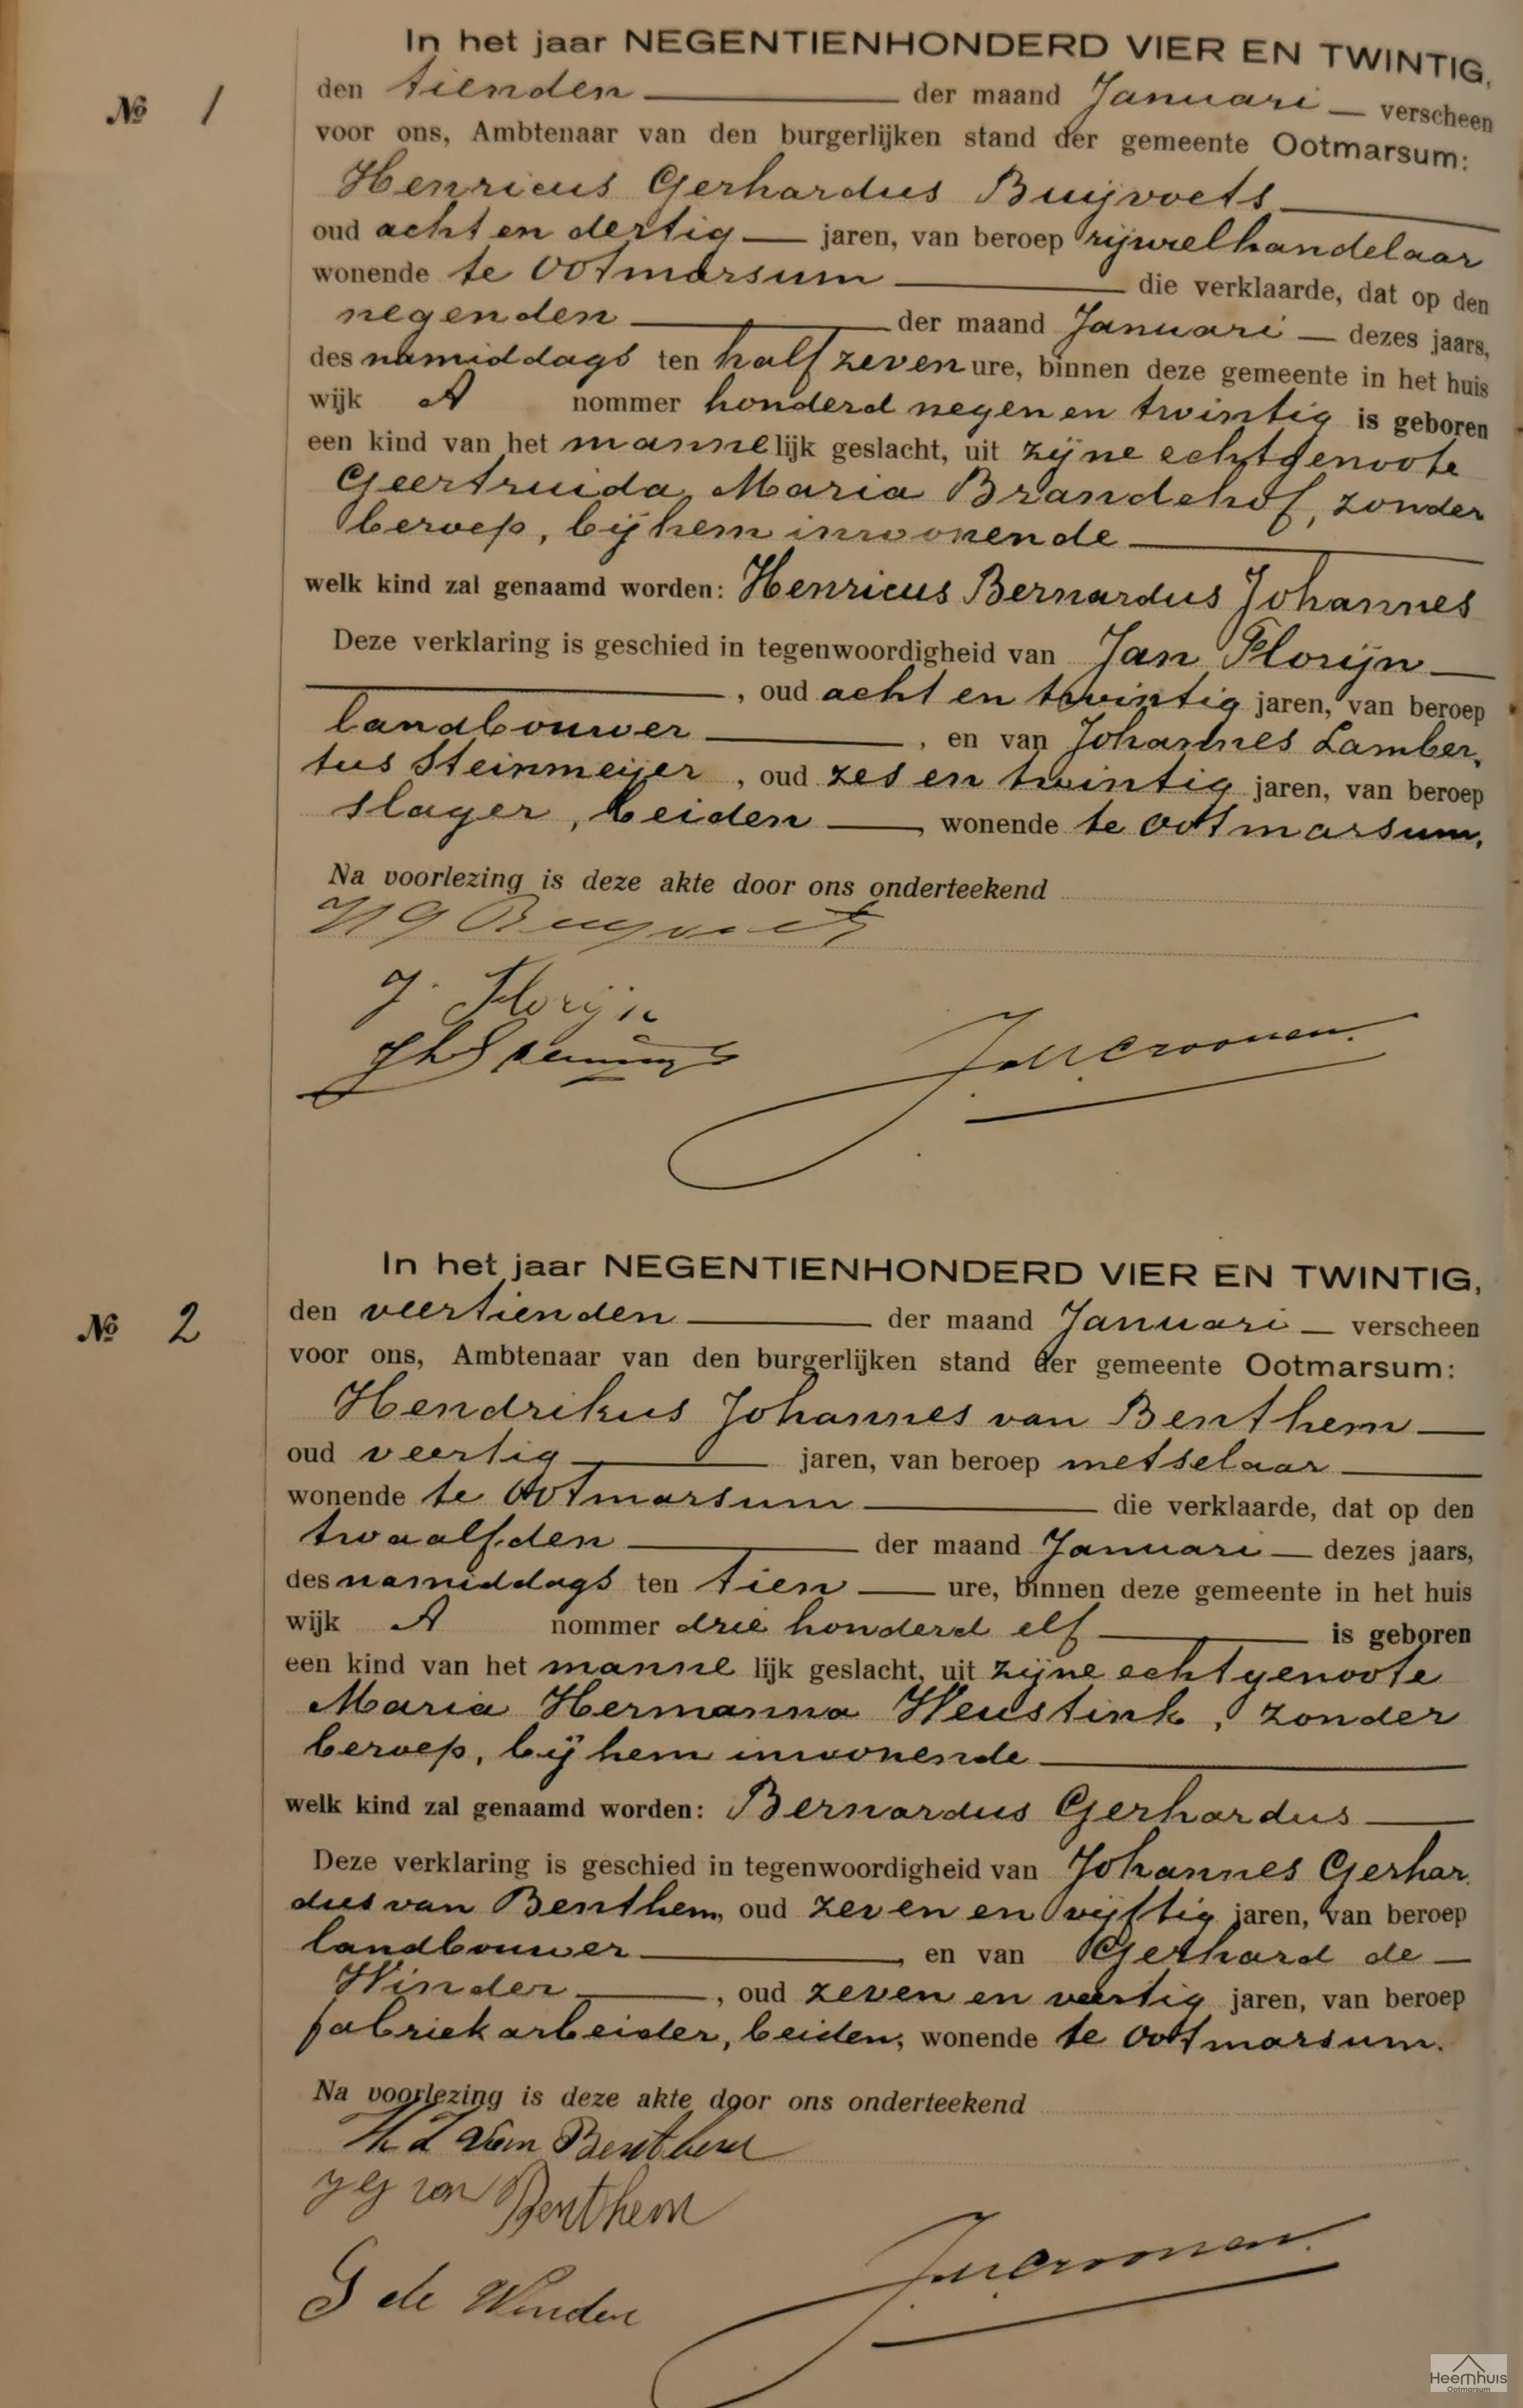 In het jaar NEGENTIENHONDERD VIER EN TWINTIG,
№ 1
den tienden der maand Januari verscheen
voor ons, Ambtenaar van den burgerlijken stand der gemeente Ootmarsum:
Henricus Gerhardus Buijvoets
oud acht en dertig jaren, van beroep rijwielhandelaar
wonende te Ootmarsum die verklaarde, dat op den
negenden der maand Januari dezes jaars,
des namiddags ten half zeven ure, binnen deze gemeente in het huis
wijk A nommer honderd negen en twintig is geboren
een kind van het mannelijk geslacht, uit zijne echtgenoote
Geertruida Maria Brandehof, zonder
beroep, bij hem inwonende
welk kind zal genaamd worden: Henricus Bernardus Johannes
Deze verklaring is geschied in tegenwoordigheid van Jan Florijn
, oud acht en twintig jaren, van beroep
landbouwer , en van Johannes Lamber,
tus Steinmeijer , oud zes en twintig jaren, van beroep
slager, beiden wonende te Ootmarsum,
Na voorlezing is deze akte door ons onderteekend
H G Buyvoets
J. Florijn
In het jaar NEGENTIENHONDERD VIER EN TWINTIG,
№ 2
den veertienden der maand Januari verscheen
voor ons, Ambtenaar van den burgerlijken stand der gemeente Ootmarsum:
Hendrikus Johannes van Benthem
oud veertig jaren, van beroep metselaar
wonende te Ootmarsum die verklaarde, dat op den
twaalfden der maand Januari dezes jaars,
des namiddags ten tien ure, binnen deze gemeente in het huis
wijk A nommer drie honderd elf is geboren
een kind van het mannelijk geslacht, uit zijne echtgenoote
Maria Hermanna Weustink, zonder
beroep, bij hem inwonende
welk kind zal genaamd worden: Bernardus Gerhardus
Deze verklaring is geschied in tegenwoordigheid van Johannes Gerhar
dus van Benthem, oud zeven en vijftig jaren, van beroep
landbouwer , en van Gerhard de
Winder , oud zeven en veertig jaren, van beroep
fabriekarbeider, beiden, wonende te Ootmarsum.
Na voorlezing is deze akte door ons onderteekend
van Benthem
J G van Benthem
G de Winder
Heemhuis
Ootmarsum